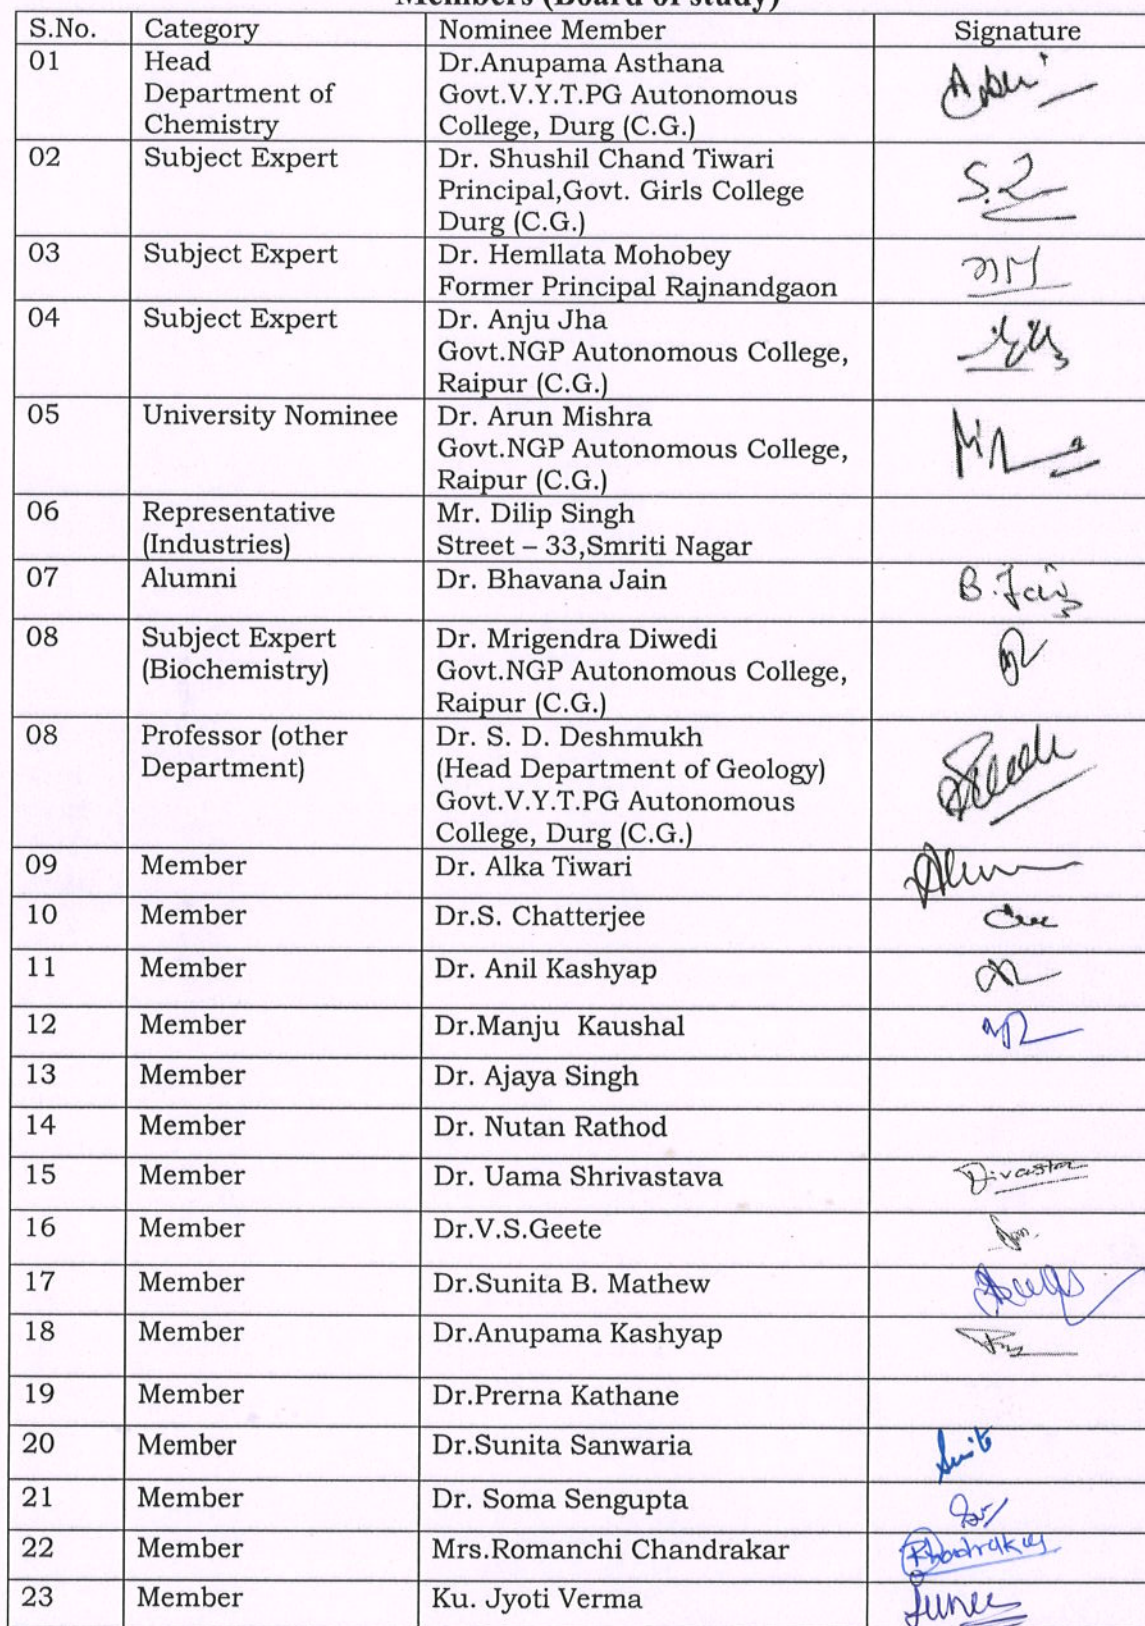 Members (Board of study)
S.No. Category Nominee Member Signature
01 Head Dr.Anupama Asthana
Department of Govt.V.Y.T.PG Autonomous
Chemistry College, Durg (C.G.)
02 Subject Expert Dr. Shushil Chand Tiwari
Principal,Govt. Girls College
Durg (C.G.)
03 Subject Expert Dr. Hemllata Mohobey
Former Principal Rajnandgaon
04 Subject Expert Dr. Anju Jha
Govt.NGP Autonomous College,
Raipur (C.G.)
05 University Nominee Dr. Arun Mishra
Govt.NGP Autonomous College,
Raipur (C.G.)
06 Representative Mr. Dilip Singh
(Industries) Street – 33,Smriti Nagar
07 Alumni Dr. Bhavana Jain B. Jain
08 Subject Expert Dr. Mrigendra Diwedi
(Biochemistry) Govt.NGP Autonomous College,
Raipur (C.G.)
08 Professor (other Dr. S. D. Deshmukh
Department) (Head Department of Geology)
Govt.V.Y.T.PG Autonomous
College, Durg (C.G.)
09 Member Dr. Alka Tiwari
10 Member Dr.S. Chatterjee
11 Member Dr. Anil Kashyap
12 Member Dr.Manju Kaushal
13 Member Dr. Ajaya Singh
14 Member Dr. Nutan Rathod
15 Member Dr. Uama Shrivastava
16 Member Dr.V.S.Geete
17 Member Dr.Sunita B. Mathew
18 Member Dr.Anupama Kashyap
19 Member Dr.Prerna Kathane
20 Member Dr.Sunita Sanwaria
21 Member Dr. Soma Sengupta
22 Member Mrs.Romanchi Chandrakar
23 Member Ku. Jyoti Verma